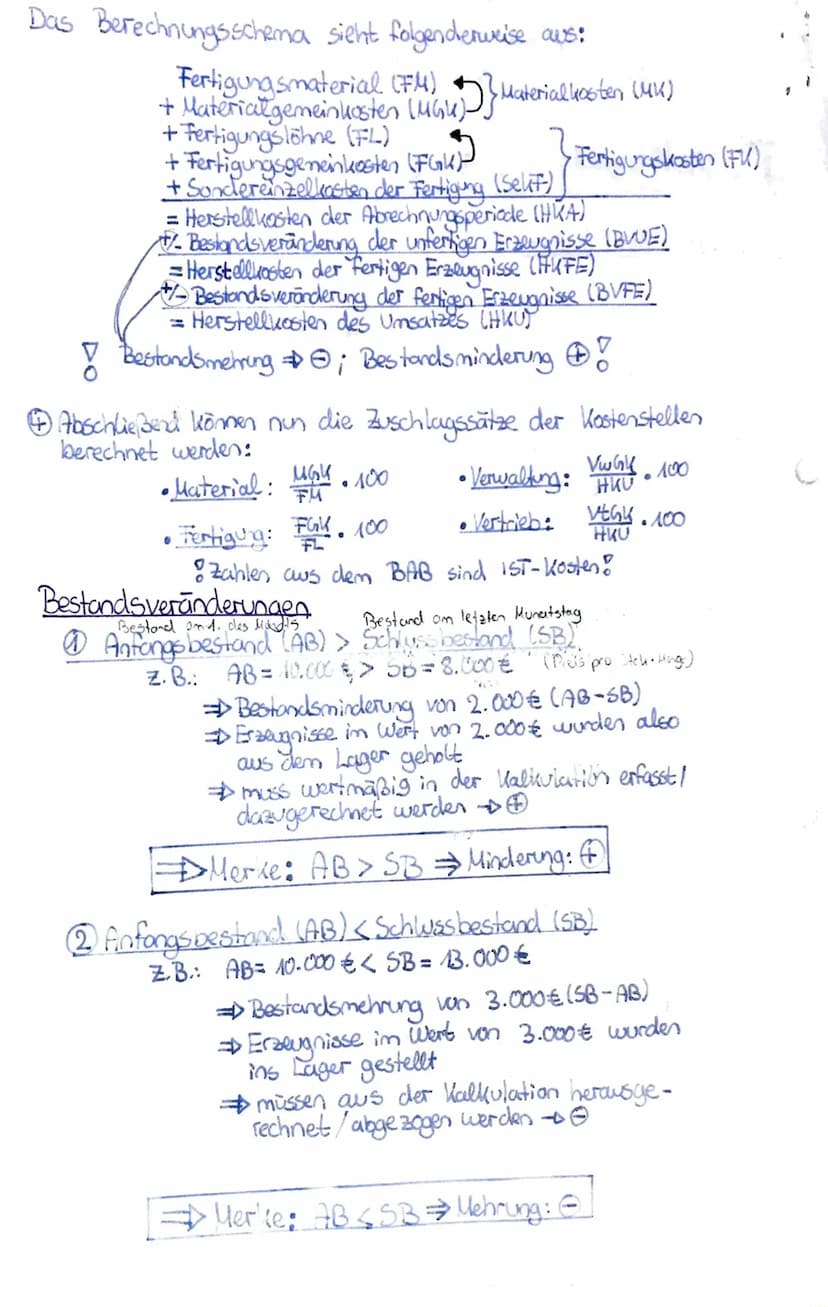 Das Berechnungsschema sieht folgenderweise aus:
Fertigungsmaterial (FM)
+ Materialgemeinkosten (MGK) } Materialkosten (MK)
+ Fertigungslöhne (FL)
+ Fertigungsgemeinkosten (FGK) } Fertigungskosten (FK)
+ Sondereinzelkosten der Fertigung (SekF)
= Herstellkosten der Abrechnungsperiode (HKA)
+/- Bestandsveränderung der unfertigen Erzeugnisse (BVUE)
= Herstellkosten der fertigen Erzeugnisse (HKFE)
+/- Bestandsveränderung der fertigen Erzeugnisse (BVFE)
= Herstellkosten des Umsatzes (HKU)
! Bestandsmehrung ⇒ ⊖ ; Bestandsminderung ⊕ !
④ Abschließend können nun die Zuschlagssätze der Kostenstellen
berechnet werden:
• Material: MGK/FM · 100 • Verwaltung: VwGK/HKU · 100
• Fertigung: FGK/FL · 100 • Vertrieb: VtGK/HKU · 100
! Zahlen aus dem BAB sind IST-Kosten!
Bestandsveränderungen
Bestand am 1. des Monats Bestand am letzten Monatstag
① Anfangsbestand (AB) > Schlussbestand (SB)
z.B.: AB = 10.000 € > SB = 8.000 € (Preis pro Menge)
⇒ Bestandsminderung von 2.000 € (AB-SB)
⇒ Erzeugnisse im Wert von 2.000 € wurden also
aus dem Lager geholt
⇒ muss wertmäßig in der Kalkulation erfasst/
dazugerechnet werden → ⊕
⇒ Merke: AB > SB ⇒ Minderung: ⊕
② Anfangsbestand (AB) < Schlussbestand (SB)
z.B.: AB = 10.000 € < SB = 13.000 €
⇒ Bestandsmehrung von 3.000 € (SB-AB)
⇒ Erzeugnisse im Wert von 3.000 € wurden
ins Lager gestellt
⇒ müssen aus der Kalkulation herausge-
rechnet / abgezogen werden → ⊖
⇒ Merke: AB < SB ⇒ Mehrung: ⊖